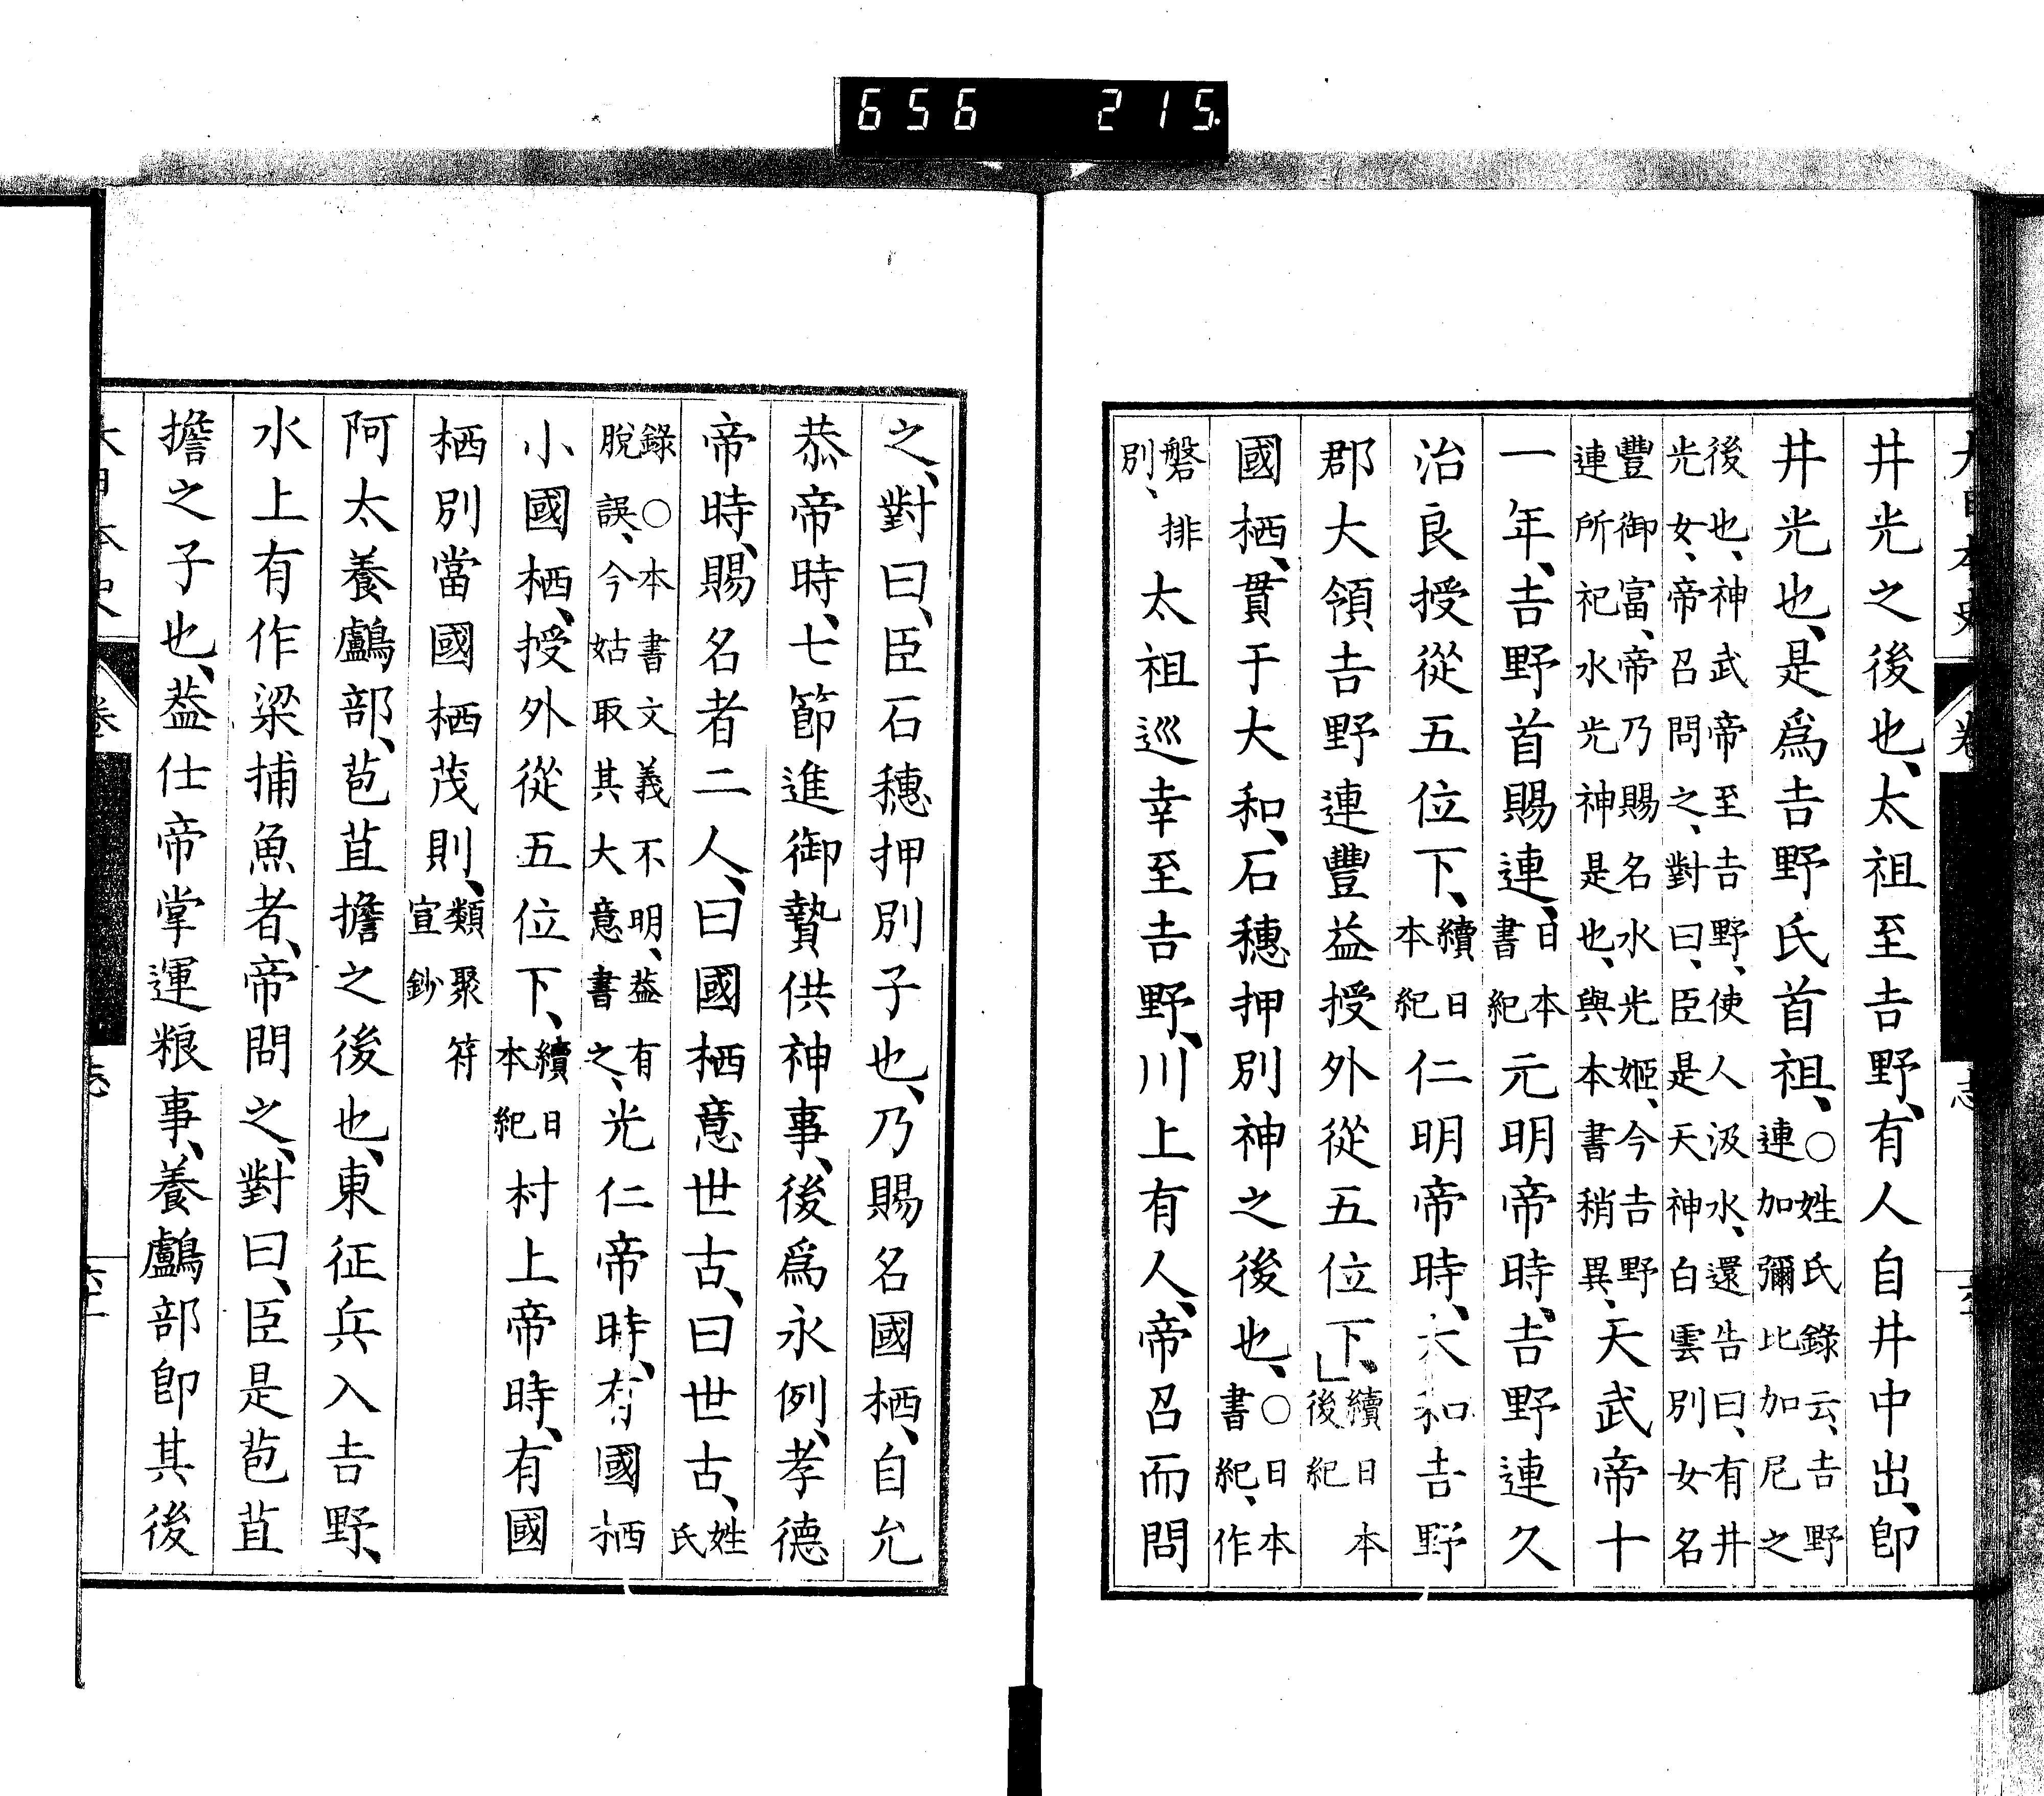 656 215.
井光之後也、太祖至吉野、有人自井中出、卽
井光也、是爲吉野氏首祖、○姓氏錄云、吉野連加彌比加尼之
後也、神武帝至吉野、使人汲水、還告曰、有井光女、帝召問之、對曰、臣是天神白雲別女名
豐御富、帝乃賜名水光姬、今吉野連所祀水光神是也、與本書稍異、天武帝十
一年、吉野首賜連、日本書紀元明帝時、吉野連久
治良授從五位下、續日本紀仁明帝時、大和吉野
郡大領吉野連豐益授外從五位下、續日本後紀
國栖、貫于大和、石穗押別神之後也、○日本書紀、作
磐排別、太祖巡幸至吉野、川上有人、帝召而問
之、對曰、臣石穗押別子也、乃賜名國栖、自允
恭帝時、七節進御贄供神事、後爲永例、孝德
帝時、賜名者二人、曰國栖意世古、曰世古、姓氏
錄○本書文義不明、蓋有脫誤、今姑取其大意書之、光仁帝時、有國栖
小國栖、授外從五位下、續日本紀村上帝時、有國
栖別當國栖茂則、類聚符宣鈔
阿太養鸕部、苞苴擔之後也、東征兵入吉野、
水上有作梁捕魚者、帝問之、對曰、臣是苞苴
擔之子也、葢仕帝掌運粮事、養鸕部卽其後